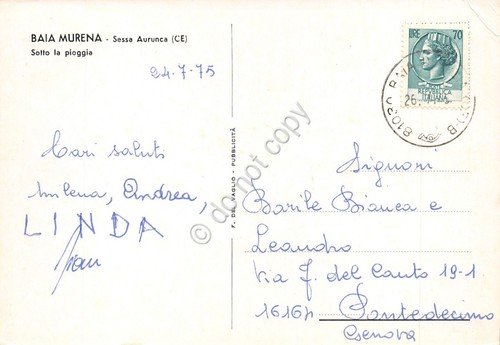 BAIA MURENA - Sessa Aurunca (CE)
Sotto la pioggia
24-7-75
Cari saluti
Milena, Andrea,
LINDA
F. DEL VAGLIO - PUBBLICITÀ
do not copy
LIRE 70
REPUBBLICA
ITALIANA
26.
Signori
Barile Bianca e
Leandro
Via J. del Canto 19-1
16164 Pontedecimo
Genova